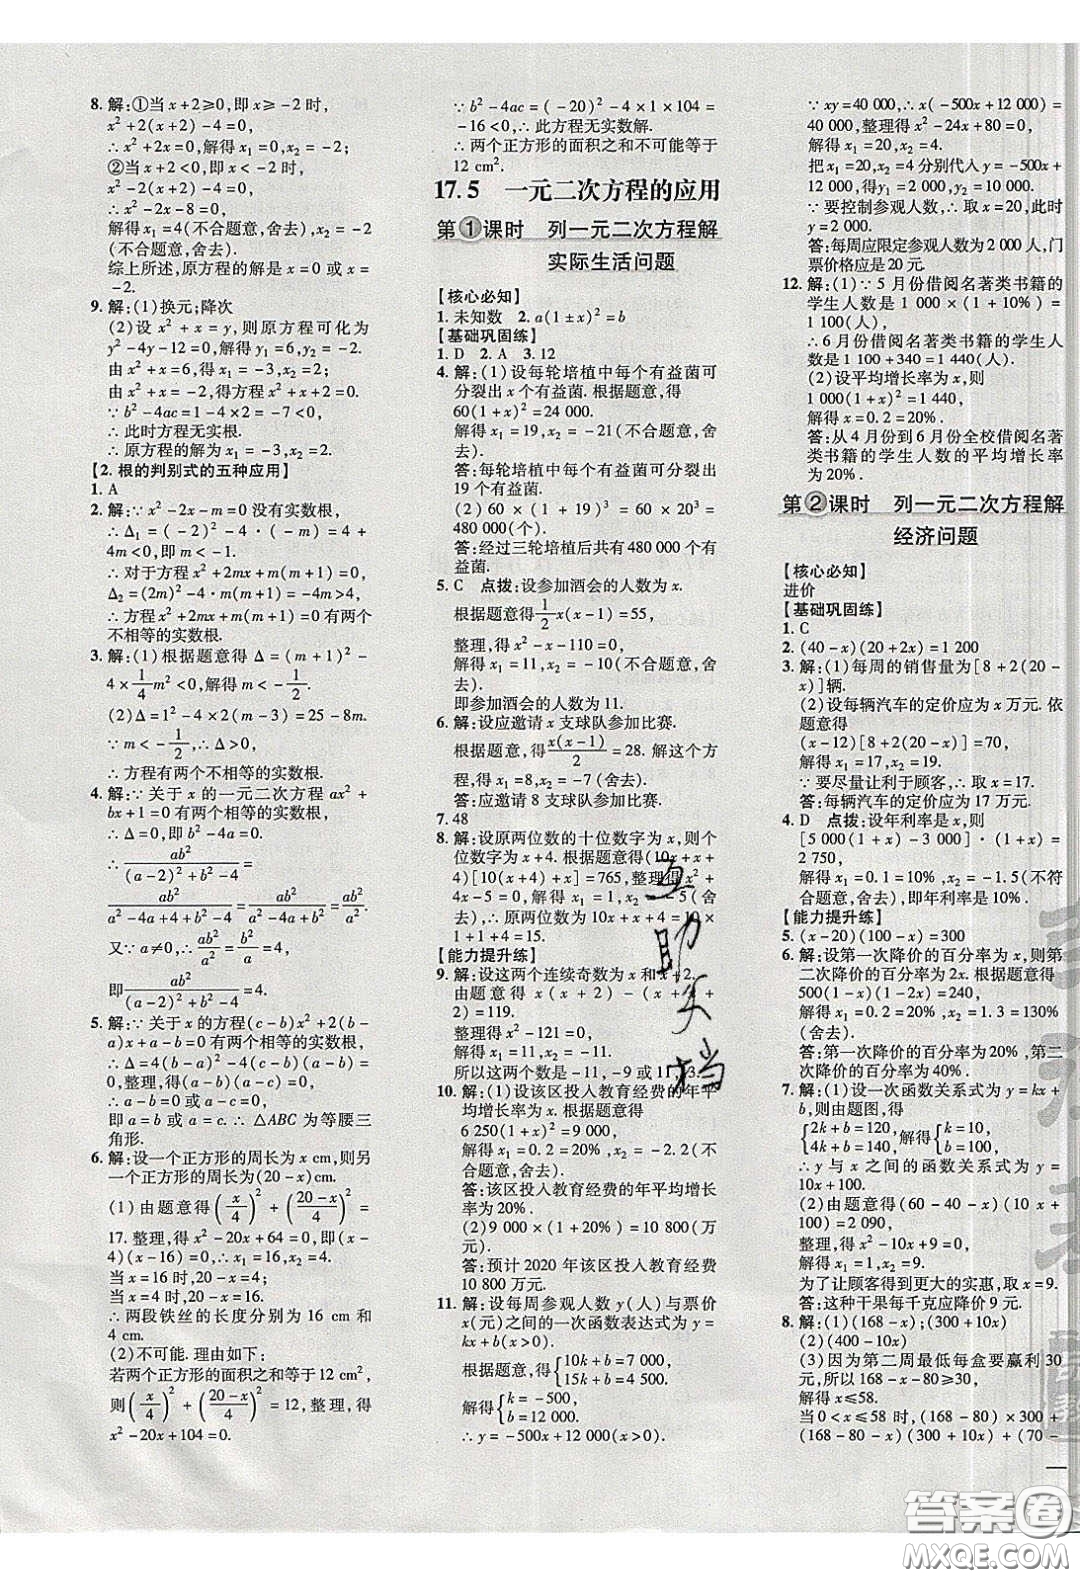 8. 解:①当 x+2≥0,即 x≥-2 时,
x²+2(x+2)-4=0,
∴ x²+2x=0,解得 x₁=0,x₂=-2;
②当 x+2<0,即 x<-2 时,
x²-2(x+2)-4=0,
∴ x²-2x-8=0,
解得 x₁=4(不合题意,舍去),x₂=-2
(不合题意,舍去).
综上所述,原方程的解是 x=0 或 x=
-2.
9. 解:(1)换元;降次
(2)设 x²+x=y,则原方程可化为
y²-4y-12=0,解得 y₁=6,y₂=-2.
由 x²+x=6,得 x₁=-3,x₂=2.
由 x²+x=-2,得方程 x²+x+2=0.
∵ b²-4ac=1-4×2=-7<0,
∴ 此时方程无实根.
∴ 原方程的解为 x₁=-3,x₂=2.
【2. 根的判别式的五种应用】
1. A
2. 解:∵ x²-2x-m=0 没有实数根,
∴ Δ₁=(-2)²-4·(-m)=4+
4m<0,即 m<-1.
∴ 对于方程 x²+2mx+m(m+1)=0,
Δ₂=(2m)²-4·m(m+1)=-4m>4,
∴ 方程 x²+2mx+m(m+1)=0 有两个
不相等的实数根.
3. 解:(1)根据题意得 Δ=(m+1)²-
4×1/4m²=0,解得 m=-1/2.
(2)Δ=1²-4×2(m-3)=25-8m.
∵ m<-1/2,∴ Δ>0,
∴ 方程有两个不相等的实数根.
4. 解:∵ 关于 x 的一元二次方程 ax²+
bx+1=0 有两个相等的实数根,
∴ Δ=0,即 b²-4a=0.
∴ ab²/((a-2)²+b²-4)=
ab²/(a²-4a+4+b²-4)=ab²/(a²-4a+b²)=ab²/a².
又∵ a≠0,∴ ab²/a²=b²/a=4,
即 ab²/((a-2)²+b²-4)=4.
5. 解:∵ 关于 x 的方程(c-b)x²+2(b-
a)x+a-b=0 有两个相等的实数根,
∴ Δ=4(b-a)²-4(c-b)(a-b)=
0,整理,得(a-b)(a-c)=0,
∴ a-b=0 或 a-c=0,
即 a=b 或 a=c. ∴ △ABC 为等腰三
角形.
6. 解:设一个正方形的周长为 x cm,则另
一个正方形的周长为(20-x)cm.
(1)由题意得(x/4)²+((20-x)/4)²=
17. 整理,得 x²-20x+64=0,即(x-
4)(x-16)=0,∴ x₁=16,x₂=4.
当 x=16 时,20-x=4.
当 x=4 时,20-x=16.
∴ 两段铁丝的长度分别为 16 cm 和
4 cm.
(2)不可能. 理由如下:
若两个正方形的面积之和等于 12 cm²,
则(x/4)²+((20-x)/4)²=12,整理,得
x²-20x+104=0.
∵ b²-4ac=(-20)²-4×1×104=
-16<0,∴ 此方程无实数解.
∴ 两个正方形的面积之和不可能等于
12 cm².
17.5 一元二次方程的应用
第①课时 列一元二次方程解
实际生活问题
【核心必知】
1. 未知数 2. a(1±x)²=b
【基础巩固练】
1. D 2. A 3. 12
4. 解:(1)设每轮培植中每个有益菌可
分裂出 x 个有益菌. 根据题意,得
60(1+x)²=24 000.
解得 x₁=19,x₂=-21(不合题意,舍
去).
答:每轮培植中每个有益菌可分裂出
19 个有益菌.
(2)60×(1+19)³=60×20³=
480 000(个).
答:经过三轮培植后共有 480 000 个有
益菌.
5. C 点拨:设参加酒会的人数为 x.
根据题意得1/2x(x-1)=55,
整理,得 x²-x-110=0,
解得 x₁=11,x₂=-10(不合题意,舍
去).
即参加酒会的人数为 11.
6. 解:设应邀请 x 支球队参加比赛.
根据题意,得x(x-1)/2=28. 解这个方
程,得 x₁=8,x₂=-7(舍去).
答:应邀请 8 支球队参加比赛.
7. 48
8. 解:设原两位数的十位数字为 x,则个
位数字为 x+4. 根据题意,得(10x+x+
4)[10(x+4)+x]=765,整理得 x²+
4x-5=0,解得 x₁=1,x₂=-5(舍
去),∴ 原两位数为 10x+x+4=10×
1+1+4=15.
【能力提升练】
9. 解:设这两个连续奇数为 x 和 x+2.
由题意得 x(x+2)-(x+x+
2)=119.
整理得 x²-121=0,
解得 x₁=11,x₂=-11.
所以这两个数是-11,-9 或 11,13.
10. 解:(1)设该区投入教育经费的年平
均增长率为 x. 根据题意,得
6 250(1+x)²=9 000,
解得 x₁=0.2=20%,x₂=-2.2(不
合题意,舍去).
答:该区投入教育经费的年平均增长
率为 20%.
(2)9 000×(1+20%)=10 800(万
元).
答:预计 2020 年该区投入教育经费
10 800 万元.
11. 解:设每周参观人数 y(人)与票价
x(元)之间的一次函数表达式为 y=
kx+b(x>0).
根据题意,得{10k+b=7 000,
15k+b=4 500,
解得{k=-500,
b=12 000,
∴ y=-500x+12 000(x>0).
∵ xy=40 000,∴ x(-500x+12 000)=
40 000,整理得 x²-24x+80=0,
解得 x₁=20,x₂=4.
把 x₁=20,x₂=4 分别代入 y=-500x+
12 000,得 y₁=2 000,y₂=10 000.
∵ 要控制参观人数,∴ 取 x=20,此时
y=2 000.
答:每周应限定参观人数为 2 000 人,门
票价格应是 20 元.
12. 解:(1)∵ 5 月份借阅名著类书籍的
学生人数是 1 000×(1+10%)=
1 100(人),
∴ 6 月份借阅名著类书籍的学生人数
是 1 100+340=1 440(人).
(2)设平均增长率为 x,则
1 000(1+x)²=1 440,
解得 x=0.2=20%.
答:从 4 月份到 6 月份全校借阅名著
类书籍的学生人数的平均增长率
为 20%.
第②课时 列一元二次方程解
经济问题
【核心必知】
进价
【基础巩固练】
1. C
2. (40-x)(20+2x)=1 200
3. 解:(1)每周的销售量为[8+2(20-
x)]辆.
(2)设每辆汽车的定价应为 x 万元. 依
题意得
(x-12)[8+2(20-x)]=70,
解得 x₁=17,x₂=19.
∵ 要尽量让利于顾客,∴ 取 x=17.
答:每辆汽车的定价应为 17 万元.
4. D 点拨:设年利率是 x,则
[5 000(1+x)-3 000]·(1+x)=
2 750,
解得 x₁=0.1=10%,x₂=-1.5(不符
合题意,舍去),即年利率是 10%.
【能力提升练】
5. (x-20)(100-x)=300
6. 解:设第一次降价的百分率为 x,则第
二次降价的百分率为 2x. 根据题意,得
500(1-x)(1-2x)=240,
解得 x₁=0.2=20%,x₂=1.3=130%
(舍去).
答:第一次降价的百分率为 20%,第二
次降价的百分率为 40%.
7. 解:(1)设一次函数关系式为 y=kx+
b,则由题图,得
{2k+b=120,
4k+b=140,解得{k=10,
b=100,
∴ y 与 x 之间的函数关系式为 y=
10x+100.
(2)由题意得(60-40-x)(10x+
100)=2 090,
整理,得 x²-10x+9=0,
解得 x₁=1,x₂=9.
为了让顾客得到更大的实惠,取 x=9.
答:这种干果每千克应降价 9 元.
8. 解:(1)(168-x);(300+10x)
(2)(400-10x)
(3)因为第二周最低每盒要赢利 30
元,所以 168-x-80≥30,
解得 x≤58.
当 0<x≤58 时,(168-80)×300+
(168-80-x)(300+10x)+(70-
互助文档
答案圈
MXQE.COM